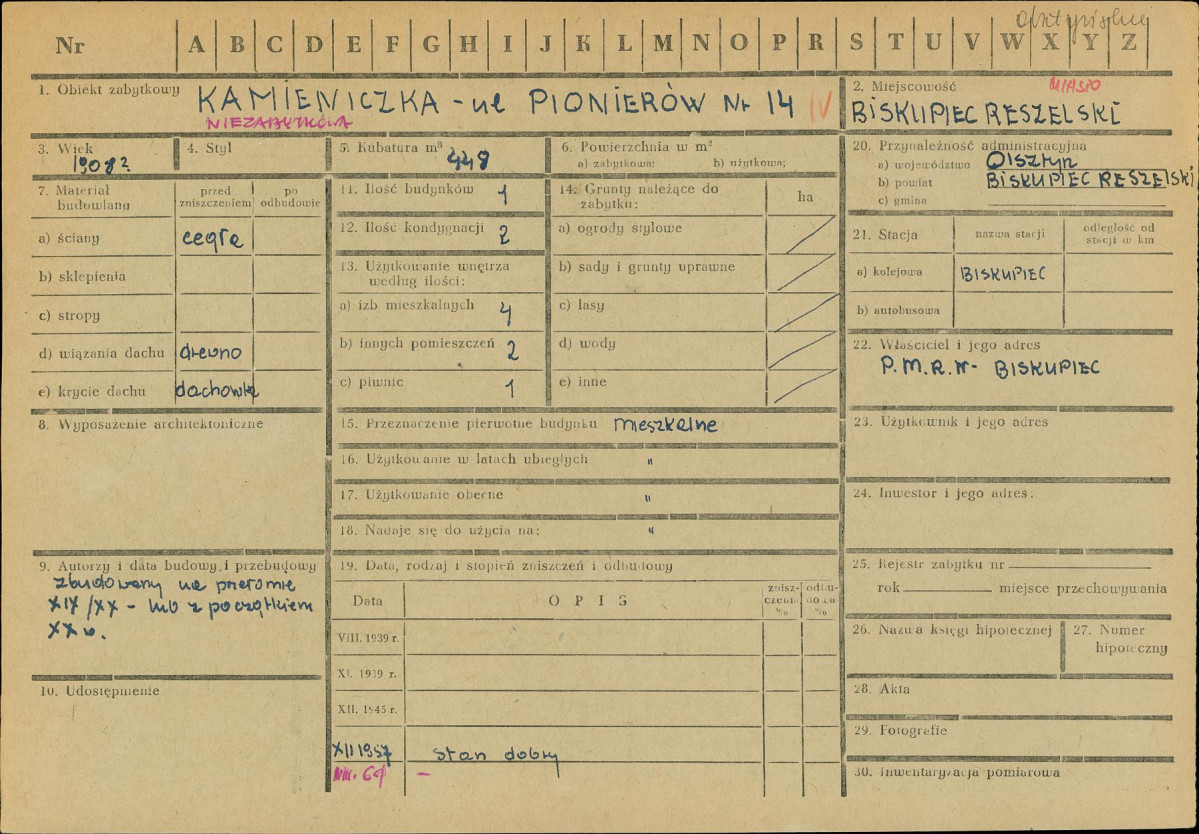 olsztyński
Nr A B C D E F G H I J K L M N O P R S T U V W X Y Z
1. Obiekt zabytkowy KAMIENICZKA - ul PIONIERÓW Nr 14 IV
NIEZABYTKOWA
2. Miejscowość MIASTO
BISKUPIEC RESZELSKI
3. Wiek 1908?
4. Styl
5. Kubatura m³ 448
6. Powierzchnia w m²
a) zabytkowa: b) użytkowa;
20. Przynależność administracyjna
a) województwo Olsztyn
b) powiat BISKUPIEC RESZELSKI
c) gmina
7. Materiał budowlany
przed zniszczeniem
po odbudowie
a) ściany cegła
b) sklepienia
c) stropy
d) wiązania dachu drewno
e) krycie dachu dachówka
11. Ilość budynków 1
12. Ilość kondygnacji 2
13. Użytkowanie wnętrza
według ilości:
a) izb mieszkalnych 4
b) innych pomieszczeń 2
c) piwnic 1
14. Grunty należące do
zabytku: ha
a) ogrody stylowe
b) sady i grunty uprawne
c) lasy
d) wody
e) inne
21. Stacja
nazwa stacji
odległość od
stacji w km
a) kolejowa BISKUPIEC
b) autobusowa
22. Właściciel i jego adres
P.M.R.N- BISKUPIEC
8. Wyposażenie architektoniczne
15. Przeznaczenie pierwotne budynku mieszkalne
16. Użytkowanie w latach ubiegłych "
17. Użytkowanie obecne "
18. Nadaje się do użycia na: "
23. Użytkownik i jego adres
24. Inwestor i jego adres:
9. Autorzy i data budowy i przebudowy
zbudowany na przełomie
XIX/XX - lub z początkiem
XX w.
10. Udostępnienie
19. Data, rodzaj i stopień zniszczeń i odbudowy
Data OPIS
znisz-
czeni. %
odbu-
dowa %
VIII. 1939 r.
XI. 1939 r.
XII. 1945 r.
XII 1957 stan dobry
VIII. 64 -
25. Rejestr zabytku nr
rok miejsce przechowywania
26. Nazwa księgi hipotecznej
27. Numer
hipoteczny
28. Akta
29. Fotografie
30. Inwentaryzacja pomiarowa